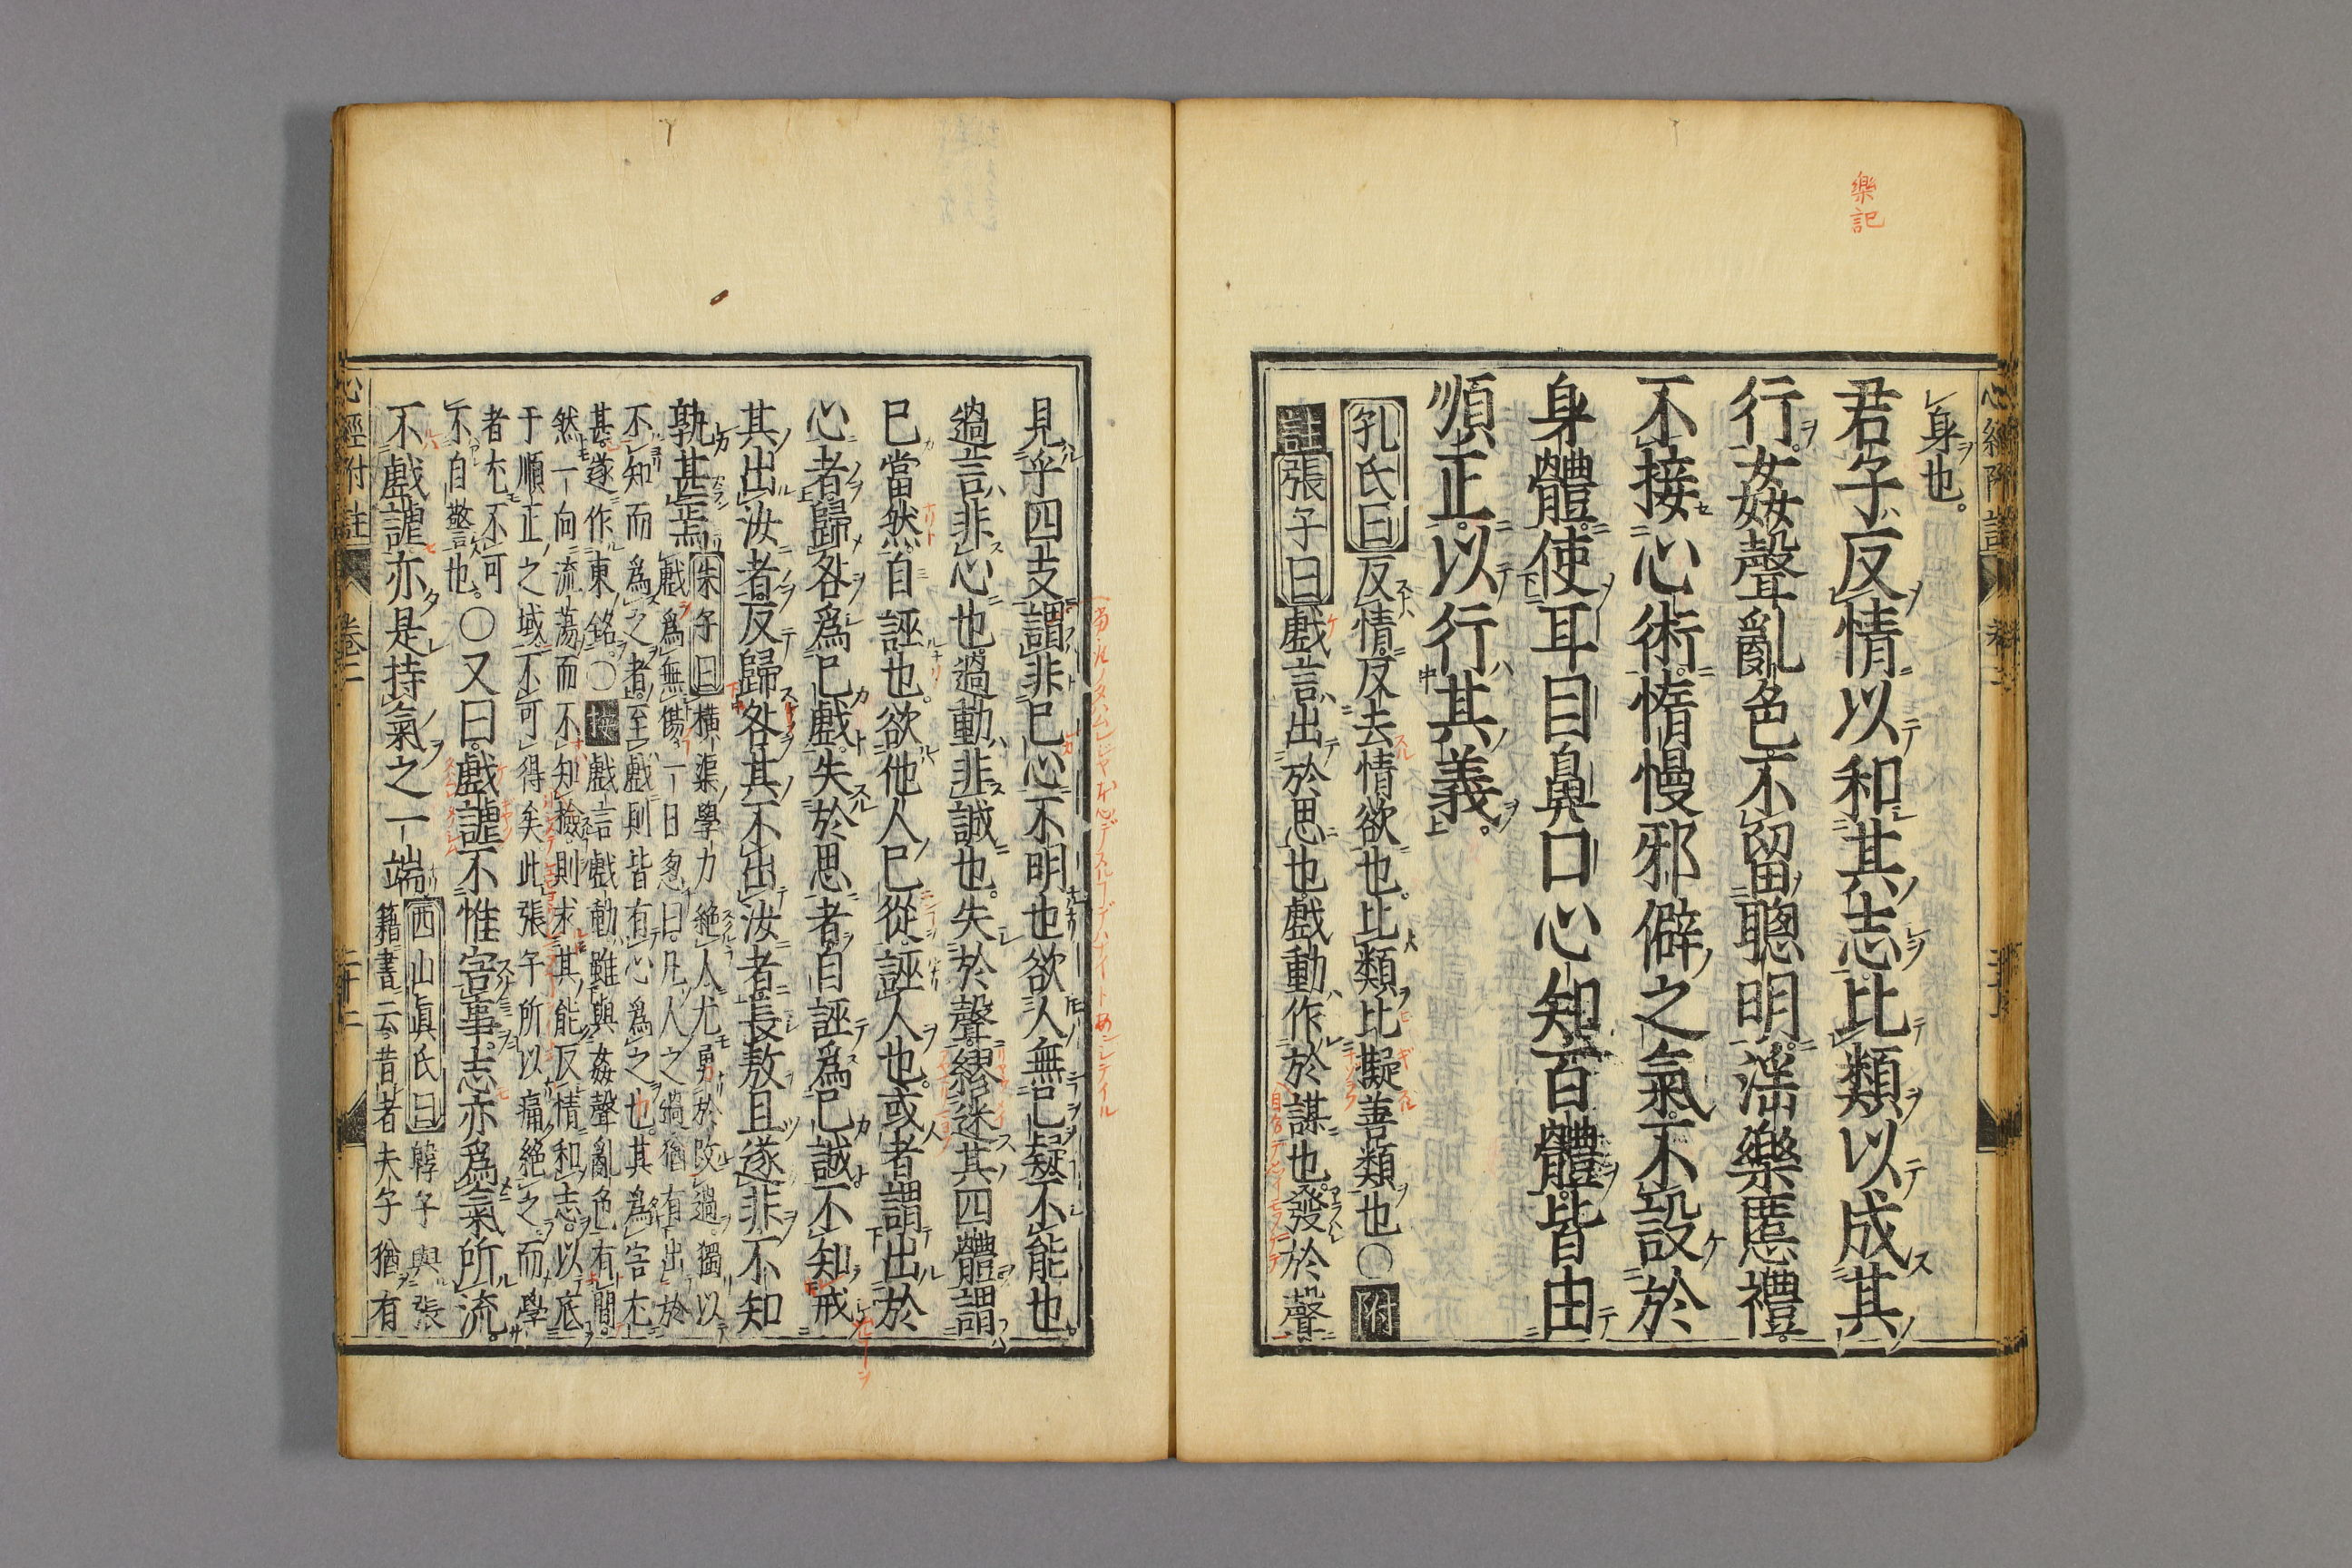 樂記
身也。
君子反情以和其志比類以成其
行。姦聲亂色不留聰明。淫樂慝禮。
不接心術。惰慢邪僻之氣不設於
身體。使耳目鼻口心知百體皆由
順正。以行其義。
孔氏曰反情。反去情欲也。比類比擬善類也〇附
註張子曰戲言出於思也戲動作於謀也。發於聲
見乎四支謂非己心不明也欲人無己疑不能也。
過言非心也。過動非誠也。失於聲。繆迷其四體謂
己當然。自誣也。欲他人己從。誣人也。或者謂出於
心者歸咎爲己戲。失於思者自誣爲己誠。不知戒
其出汝者。反歸咎其不出汝者長敖且遂非不知
孰甚焉
朱子曰橫渠學力絶人尤勇於改過。獨以
戲爲無傷。一日忽曰。凡人之過猶有出於
不知而爲之者。至戲則皆有心爲之也。其爲害尤
甚。遂作東銘。〇按戲言戲動雖與姦聲亂色有間。
然一向流蕩而不知檢。則求其能反情和志。以底
于順正之域不可得矣此張子所以痛絶之。而學
者尤不可
不自警也。〇又曰。戲謔不惟害事。志亦爲氣所流。
不戲謔亦是持氣之一端
西山眞氏曰韓子與張
籍書云。昔者夫子猶有
心經附註
卷二
二十二